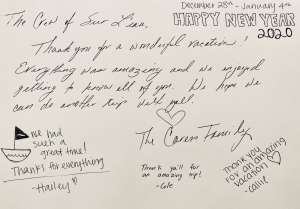 December 28th - January 4th
HAPPY NEW YEAR
2020
The Crew of Sur L'eau,
Thank you for a wonderful vacation.
Everything was amazing and we enjoyed
getting to know all of you. We hope we
can do another trip with y'all.
The Caren Family
we had
such a
great time!
Thanks for everything
-Hailey
Thank y'all for
an amazing trip!
-Cole
Thank you
for an amazing
vacation
-Calli